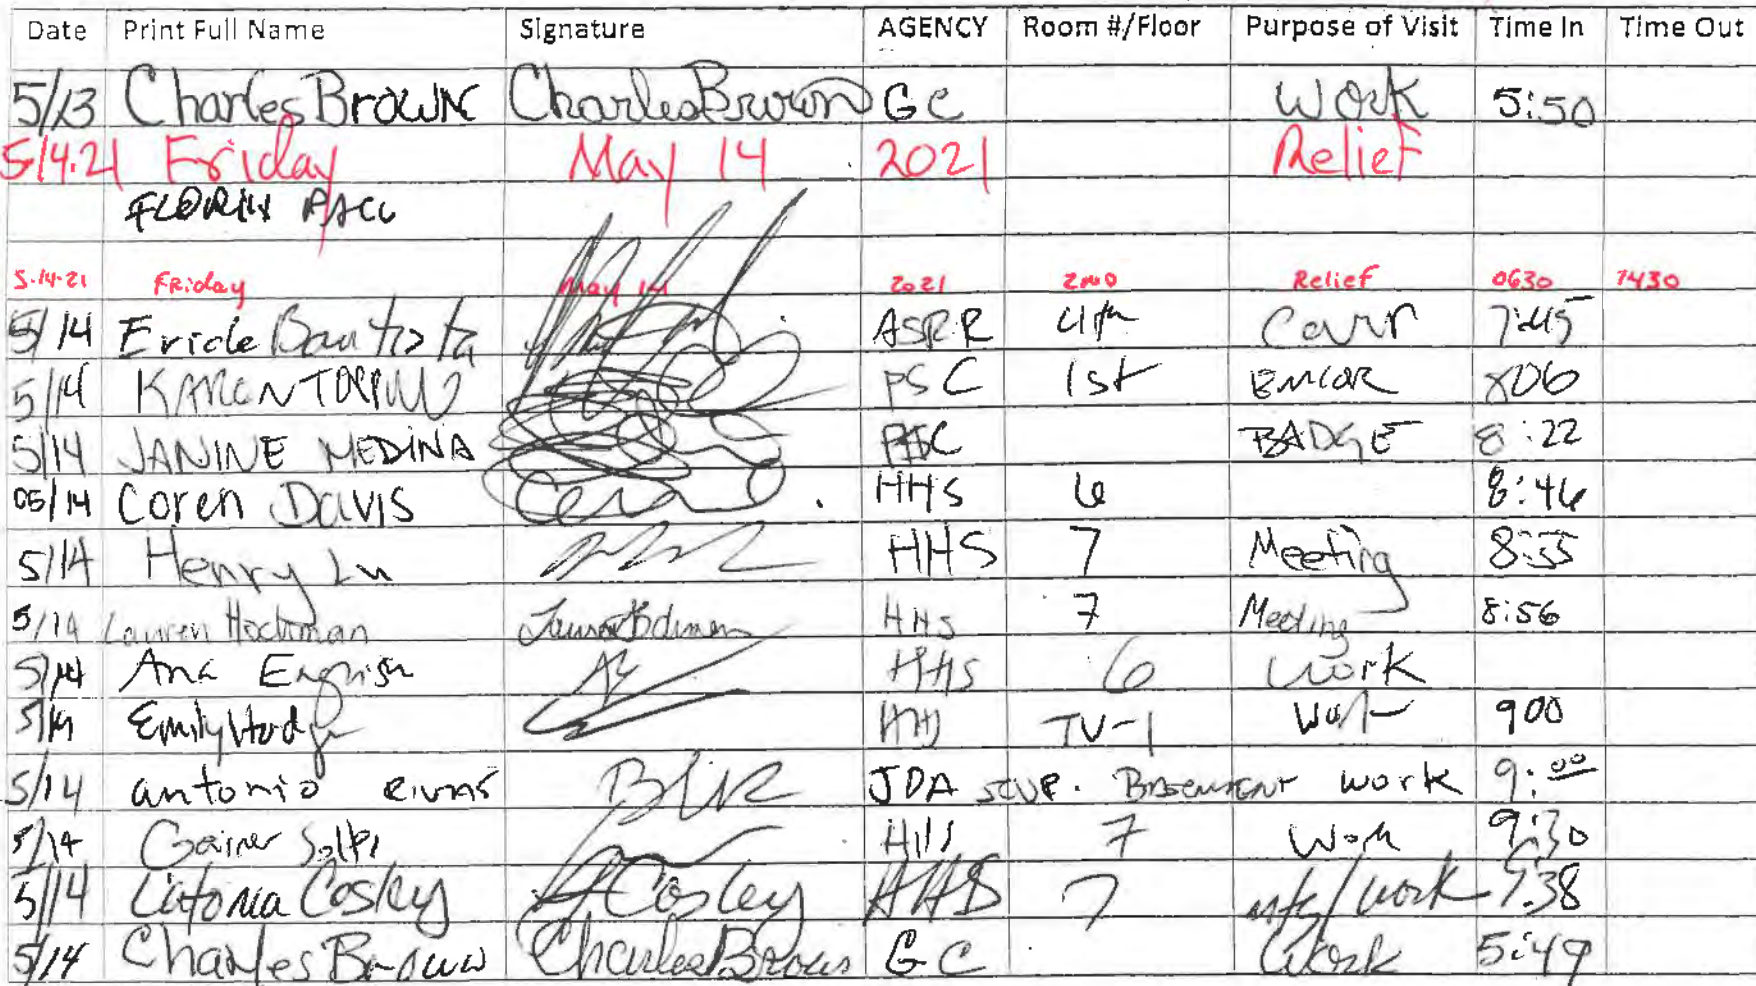 Date Print Full Name Signature AGENCY Room #/Floor Purpose of Visit Time In Time Out
5/13 Charles Brown Charles Brown GC Work 5:50
5/14.21 Friday May 14 2021 Relief
FLORIN
5-14-21 Friday May 14 2021 2ND Relief 0630 1430
5/14 ASPR 4th 7:45
5/14 KAREN PSC 1st 806
5/14 JANINE MEDINA PSC BADGE 8:22
05/14 Coren Davis HHS 6 8:46
5/14 Henry Lu HHS 7 Meeting 8:55
5/14 Lauren Hochman HHS 7 Meeting 8:56
5/14 Ana HHS 6 Work
5/14 Emily HHS 900
5/14 antonio JDA Basement work 9:00
5/14 HHS 7 Work 9:30
5/14 Latonia Cosley Cosley HHS 7 mtg/work 9:38
5/14 Charles Brown Charles Brown GC Work 5:49